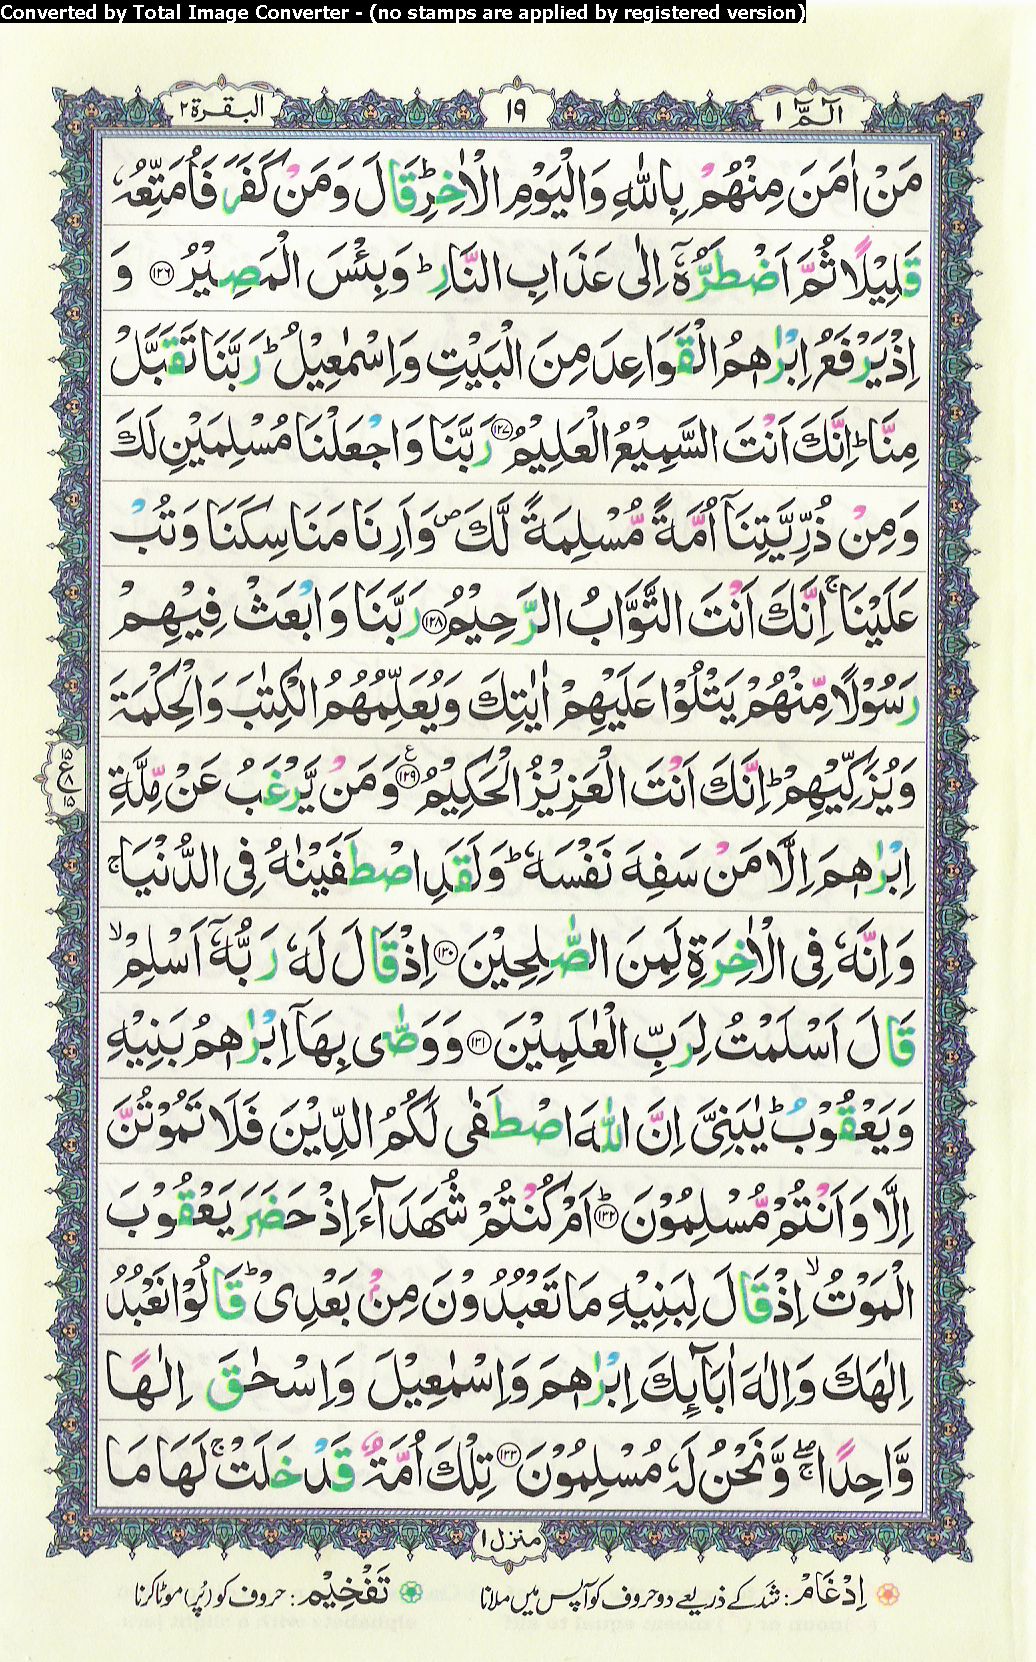 Converted by Total Image Converter - (no stamps are applied by registered version)
الٓمّٓ ١
١٩
البقرة ٢
مَنْ اٰمَنَ مِنْهُمْ بِاللّٰهِ وَالْيَوْمِ الْاٰخِرِؕ قَالَ وَمَنْ كَفَرَ فَاُمَتِّعُهٗ
قَلِيْلًا ثُمَّ اَضْطَرُّهٗۤ اِلٰى عَذَابِ النَّارِؕ وَبِئْسَ الْمَصِيْرُ ۝١٢٦ وَ
اِذْ يَرْفَعُ اِبْرٰهٖمُ الْقَوَاعِدَ مِنَ الْبَيْتِ وَاِسْمٰعِيْلُؕ رَبَّنَا تَقَبَّلْ
مِنَّاؕ اِنَّكَ اَنْتَ السَّمِيْعُ الْعَلِيْمُ ۝١٢٧ رَبَّنَا وَاجْعَلْنَا مُسْلِمَيْنِ لَكَ
وَمِنْ ذُرِّيَّتِنَاۤ اُمَّةً مُّسْلِمَةً لَّكَ۪ وَاَرِنَا مَنَاسِكَنَا وَتُبْ
عَلَيْنَاۚ اِنَّكَ اَنْتَ التَّوَّابُ الرَّحِيْمُ ۝١٢٨ رَبَّنَا وَابْعَثْ فِيْهِمْ
رَسُوْلًا مِّنْهُمْ يَتْلُوْا عَلَيْهِمْ اٰيٰتِكَ وَيُعَلِّمُهُمُ الْكِتٰبَ وَالْحِكْمَةَ
وَيُزَكِّيْهِمْؕ اِنَّكَ اَنْتَ الْعَزِيْزُ الْحَكِيْمُ ۝١٢٩ ع وَمَنْ يَّرْغَبُ عَنْ مِّلَّةِ
١٥ ع ٨ ١٥
اِبْرٰهٖمَ اِلَّا مَنْ سَفِهَ نَفْسَهٗؕ وَلَقَدِ اصْطَفَيْنٰهُ فِى الدُّنْيَاۚ
وَاِنَّهٗ فِى الْاٰخِرَةِ لَمِنَ الصّٰلِحِيْنَ ۝١٣٠ اِذْ قَالَ لَهٗ رَبُّهٗۤ اَسْلِمْۙ
قَالَ اَسْلَمْتُ لِرَبِّ الْعٰلَمِيْنَ ۝١٣١ وَوَصّٰى بِهَاۤ اِبْرٰهٖمُ بَنِيْهِ
وَيَعْقُوْبُؕ يٰبَنِىَّ اِنَّ اللّٰهَ اصْطَفٰى لَكُمُ الدِّيْنَ فَلَا تَمُوْتُنَّ
اِلَّا وَاَنْتُمْ مُّسْلِمُوْنَؕ ۝١٣٢ اَمْ كُنْتُمْ شُهَدَآءَ اِذْ حَضَرَ يَعْقُوْبَ
الْمَوْتُۙ اِذْ قَالَ لِبَنِيْهِ مَا تَعْبُدُوْنَ مِنْۢ بَعْدِىْؕ قَالُوْا نَعْبُدُ
اِلٰهَكَ وَاِلٰهَ اٰبَآئِكَ اِبْرٰهٖمَ وَاِسْمٰعِيْلَ وَاِسْحٰقَ اِلٰهًا
وَّاحِدًاۖۚ وَّنَحْنُ لَهٗ مُسْلِمُوْنَ ۝١٣٣ تِلْكَ اُمَّةٌ قَدْ خَلَتْۚ لَهَا مَا
منزل ١
اِدْغَامْ: شد کے ذریعے دو حروف کو آپس میں ملانا
تَفْخِيْم: حروف کو (پُر) موٹا کرنا